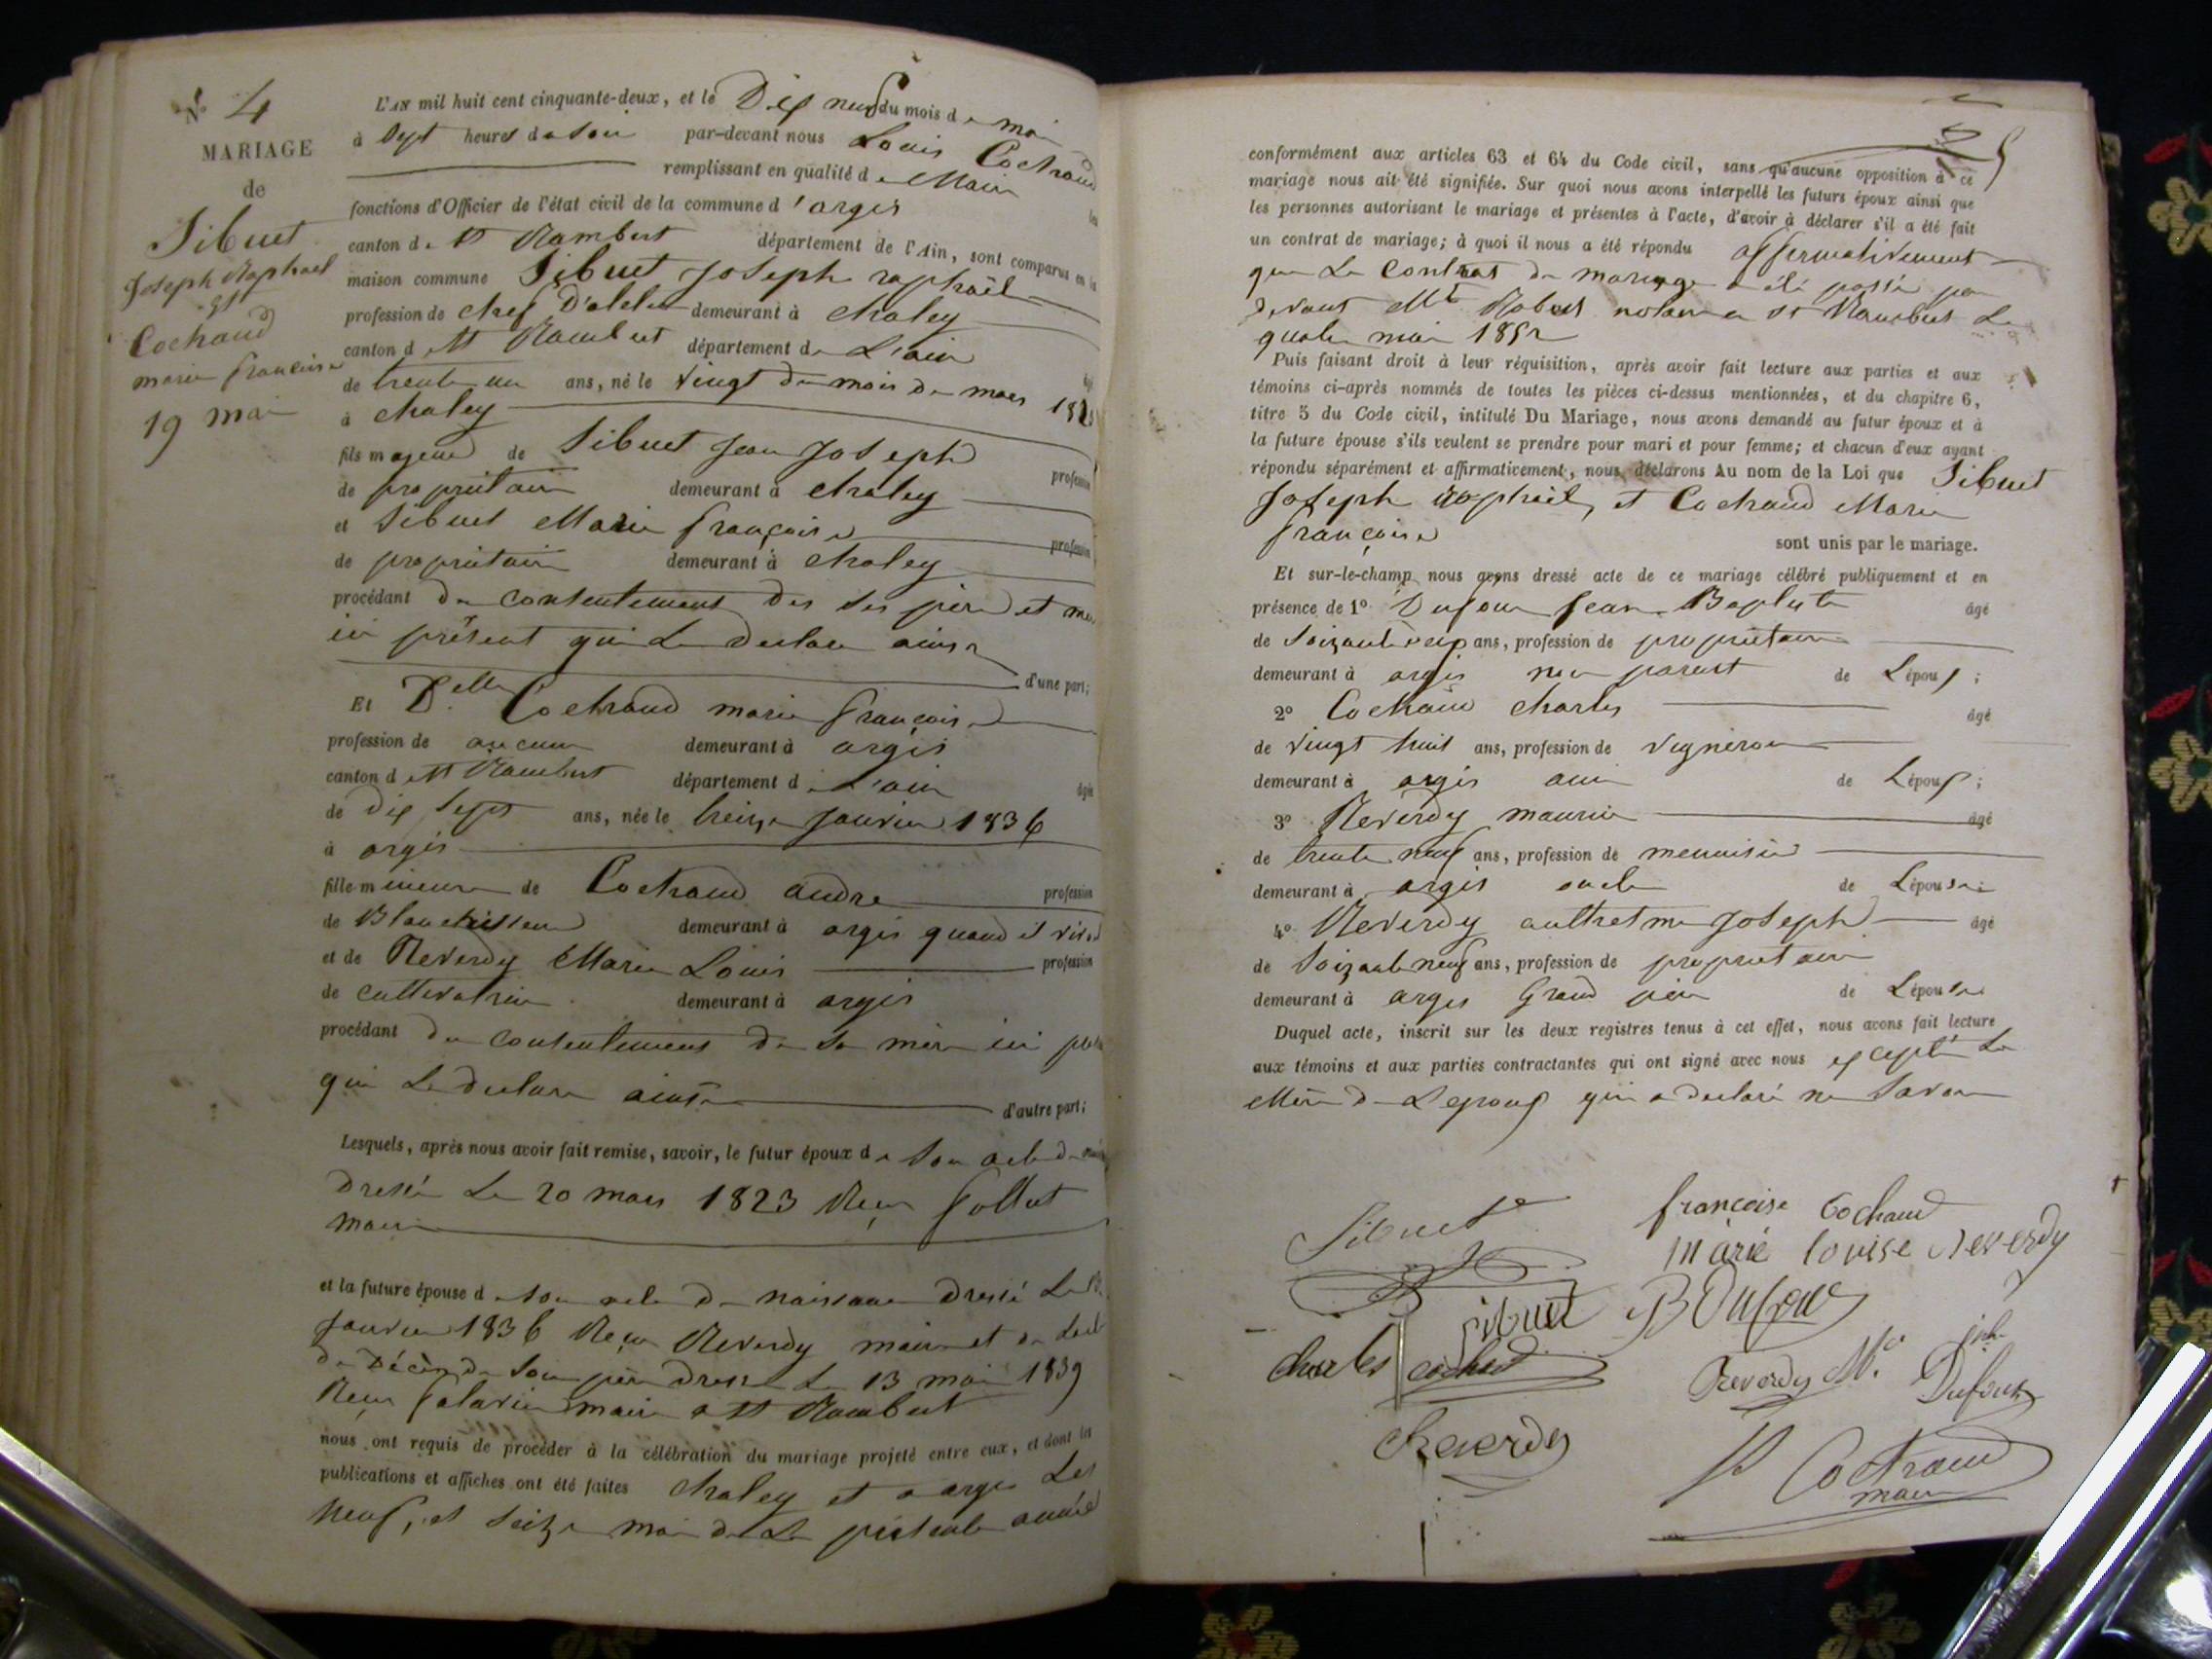 N° 4
MARIAGE
de
Sibuet
Joseph Raphael
Et
Cochaud
marie françoise
19 mai
L'an mil huit cent cinquante-deux, et le Dix neuf du mois de mai
à Sept heures du soir par-devant nous Louis Cochaud
remplissant en qualité de Maire
fonctions d'Officier de l'état civil de la commune d'argis les
canton de St Rambert département de l'Ain, sont comparus en la
maison commune Sibuet Joseph raphaël
profession de chef D'atelier demeurant à chaley
canton de St Rambert département de L'ain
de trente un ans, né le vingt du mois de mars
à chaley
fils majeur de Sibuet Jean Joseph profession
de propriétaire demeurant à chaley
et Sibuet Marie françoise profession
de propriétaire demeurant à chaley
procédant du consentement des ses père et mère
ici présent qui le declare ainsi
d'une part;
Et Delle Cochaud marie françoise
profession de aucune demeurant à argis
canton de St Rambert département de L'ain âgée
de dix sept ans, née le treize Janvier 1836
à argis
fille mineure de Cochaud andre profession
de Blanchisseur demeurant à argis quand il vivait
et de Reverdy Marie Louise profession
de cultivatrice demeurant à argis
procédant du consentement de sa mère ici
qui le declare ainsi
d'autre part;
Lesquels, après nous avoir fait remise, savoir, le futur époux de son acte de
dressé le 20 mars 1823 Reçu
maire
et la future épouse de son acte de naissance dressé le
Janvier 1836 Reçu Reverdy maire et de l'acte
de Décès de son père dressé le 13 mai 1839
Reçu maire a St Rambert
nous ont requis de procéder à la célébration du mariage projeté entre eux, et dont les
publications et affiches ont été faites chaley et a argis Les
neuf, et seize mai de la présente année
conformément aux articles 63 et 64 du Code civil, sans qu'aucune opposition à ce
mariage nous ait été signifiée. Sur quoi nous avons interpellé les futurs époux ainsi que
les personnes autorisant le mariage et présentes à l'acte, d'avoir à déclarer s'il a été fait
un contrat de mariage; à quoi il nous a été répondu affirmativement
que le Contrat de mariage a été passé par
devant Me Robert notaire a St Rambert le
quatre mai 1852
Puis faisant droit à leur réquisition, après avoir fait lecture aux parties et aux
témoins ci-après nommés de toutes les pièces ci-dessus mentionnées, et du chapitre 6,
titre 5 du Code civil, intitulé Du Mariage, nous avons demandé au futur époux et à
la future épouse s'ils veulent se prendre pour mari et pour femme; et chacun d'eux ayant
répondu séparément et affirmativement, nous déclarons Au nom de la Loi que Sibuet
Joseph raphael, et Cochaud Marie
françoise sont unis par le mariage.
Et sur-le-champ nous avons dressé acte de ce mariage célébré publiquement et en
présence de 1° Dufour Jean Baptiste âgé
de ans, profession de propriétaire
demeurant à argis non parent de L'époux;
2° Cochaud charles âgé
de vingt huit ans, profession de vigneron
demeurant à argis ami de L'époux;
3° Reverdy maurice âgé
de trente neuf ans, profession de menuisier
demeurant à argis oncle de L'épouse;
4° Reverdy Joseph âgé
de soixante neuf ans, profession de propriétaire
demeurant à argis Grand père de L'épouse
Duquel acte, inscrit sur les deux registres tenus à cet effet, nous avons fait lecture
aux témoins et aux parties contractantes qui ont signé avec nous excepté la
Mère de Lepoux qui a declaré ne savoir
Sibuet
françoise Cochaud
marie louise reverdy
Sibuet B Dufour
charles cochaud
Reverdy Mce
jph Dufour
Reverdy
Cochaud
maire